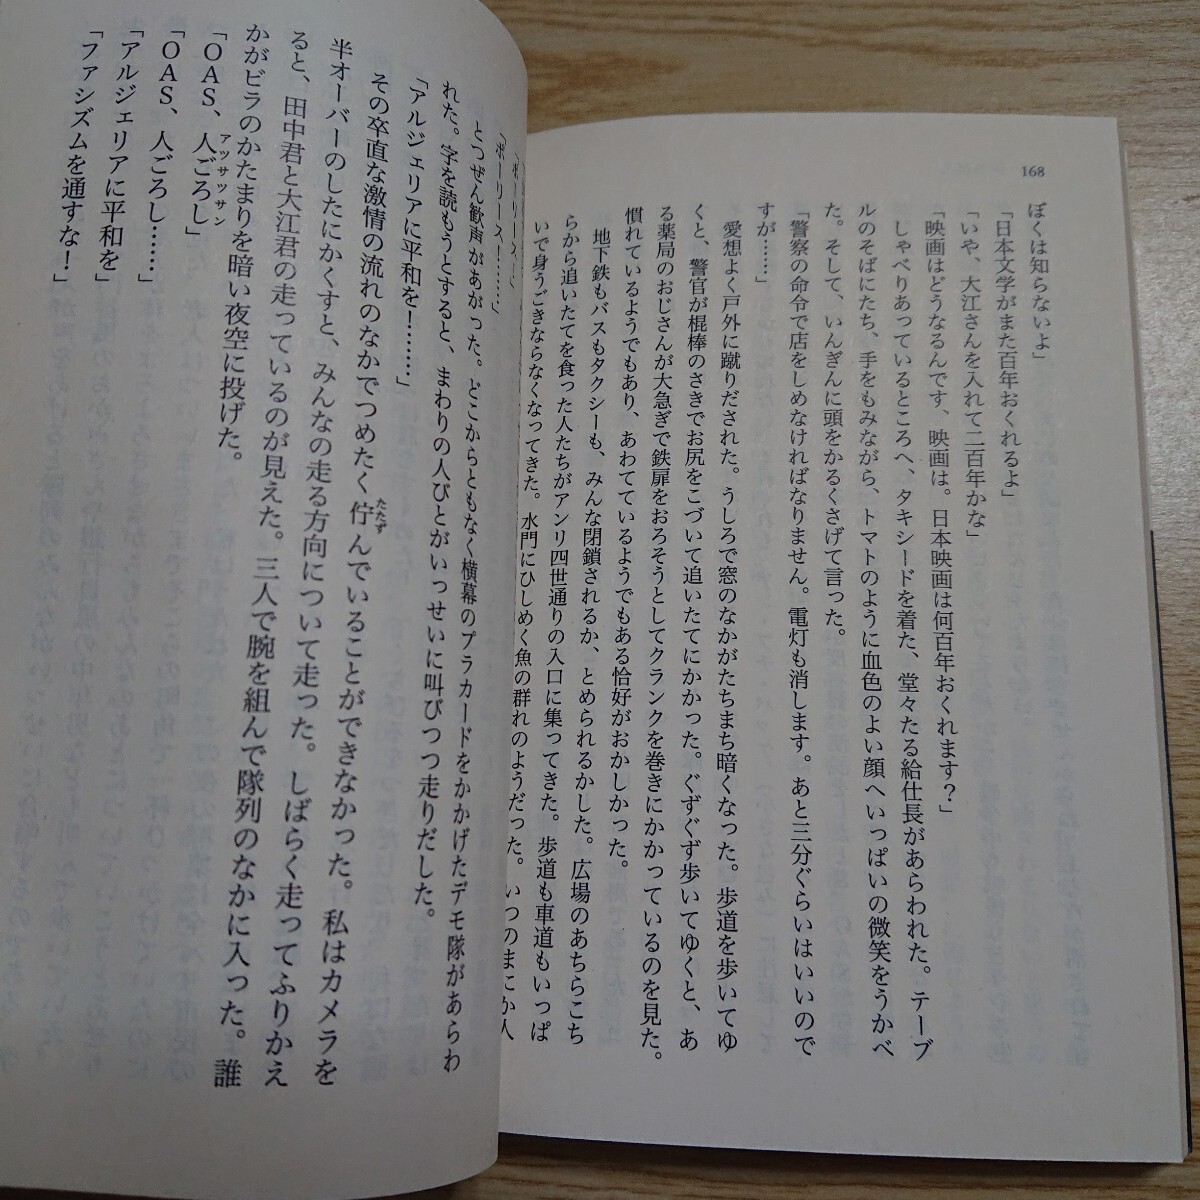 168
ぼくは知らないよ」
「日本文学がまた百年おくれるよ」
「いや、大江さんを入れて二百年かな」
「映画はどうなるんです、映画は。日本映画は何百年おくれます？」
しゃべりあっているところへ、タキシードを着た、堂々たる給仕長があらわれた。テーブ
ルのそばにたち、手をもみながら、トマトのように血色のよい顔へいっぱいの微笑をうかべ
た。そして、いんぎんに頭をかるくさげて言った。
「警察の命令で店をしめなければなりません。電灯も消します。あと三分ぐらいはいいので
すが……」
愛想よく戸外に蹴りだされた。うしろで窓のなかがたちまち暗くなった。歩道を歩いてゆ
くと、警官が棍棒のさきでお尻をこづいて追いたてにかかった。ぐずぐず歩いてゆくと、あ
る薬局のおじさんが大急ぎで鉄扉をおろそうとしてクランクを巻きにかかっているのを見た。
慣れているようでもあり、あわてているようでもある恰好がおかしかった。
地下鉄もバスもタクシーも、みんな閉鎖されるか、とめられるかした。広場のあちらこち
らから追いたてを食った人たちがアンリ四世通りの入口に集ってきた。歩道も車道もいっぱ
いで身うごきならなくなってきた。水門にひしめく魚の群れのようだった。いつのまにか人
「ポーリース！……」
とつぜん歓声があがった。どこからともなく横幕のプラカードをかかげたデモ隊があらわ
れた。字を読もうとすると、まわりの人びとがいっせいに叫びつつ走りだした。
「アルジェリアに平和を！……」
その卒直な激情の流れのなかでつめたく佇んでいることができなかった。私はカメラを
たたず
半オーバーのしたにかくすと、みんなの走る方向について走った。しばらく走ってふりかえ
ると、田中君と大江君の走っているのが見えた。三人で腕を組んで隊列のなかに入った。誰
かがビラのかたまりを暗い夜空に投げた。
「OAS、人ごろし」
アツサツサン
「OAS、人ごろし……」
「アルジェリアに平和を」
「ファシズムを通すな！」